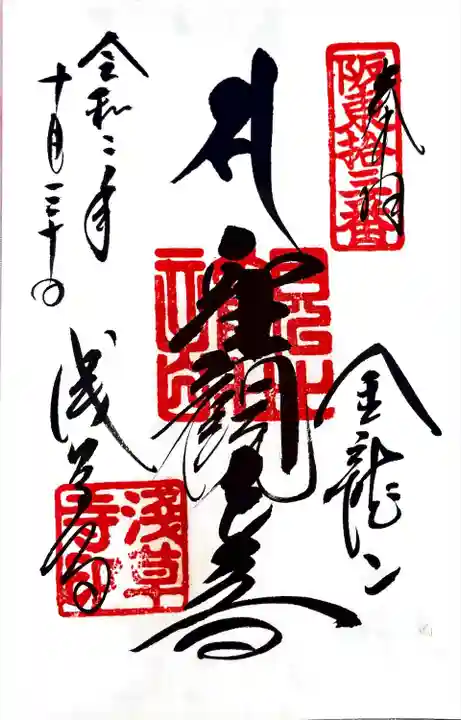 奉拝
阪東拾三番
金龍山
聖観世音
浅草寺
浅草寺印
令和二年
十月三十日